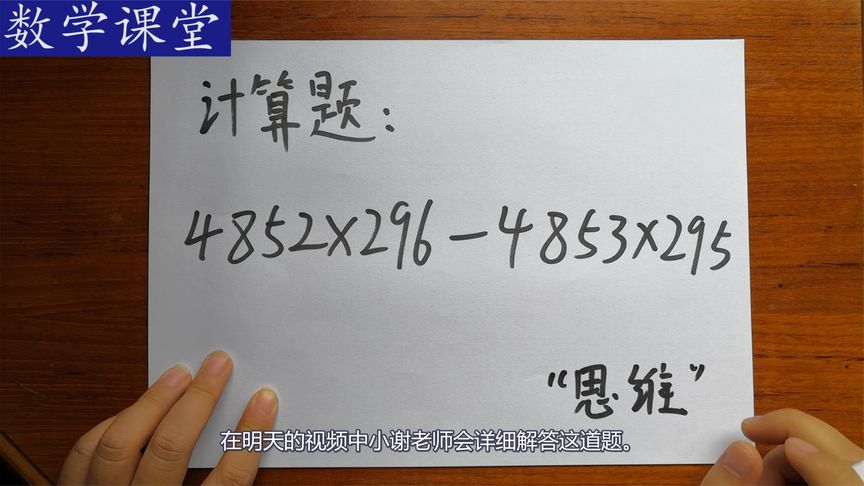 数学课堂
计算题：
4852×296-4853×295
“思维”
在明天的视频中小谢老师会详细解答这道题。